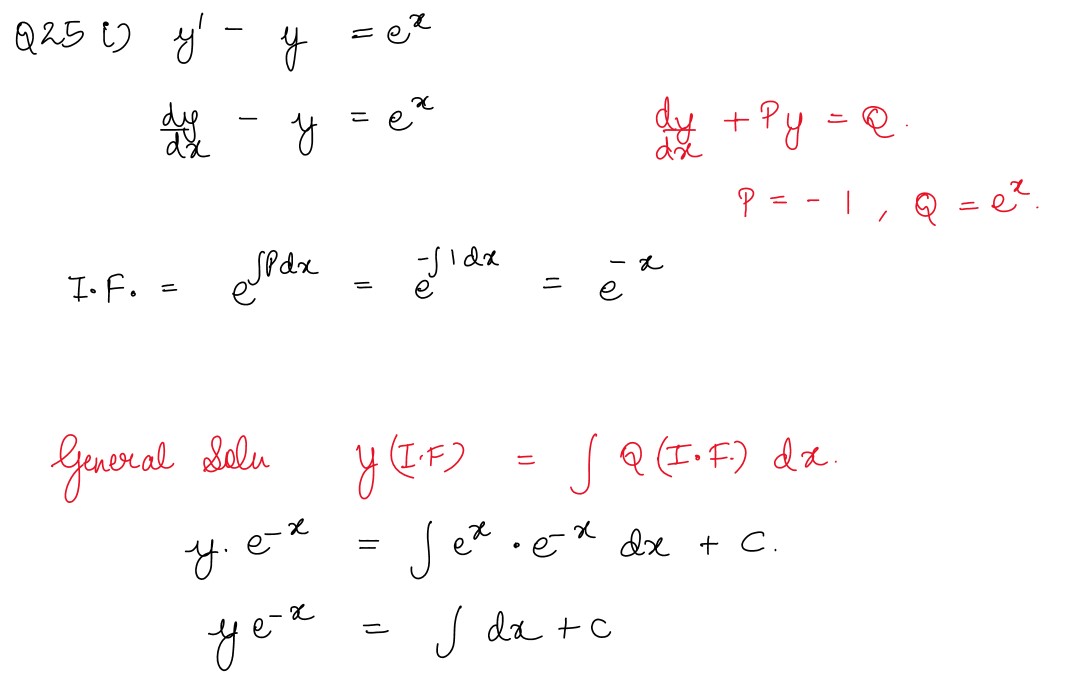 Q25 (i) y' - y = e^x
dy/dx - y = e^x
dy/dx + Py = Q.
P = -1, Q = e^x.
I.F. = e^∫Pdx = e^-∫1dx = e^-x
General Solu y(I.F) = ∫Q(I.F.) dx.
y. e^-x = ∫e^x . e^-x dx + C.
y e^-x = ∫dx + C